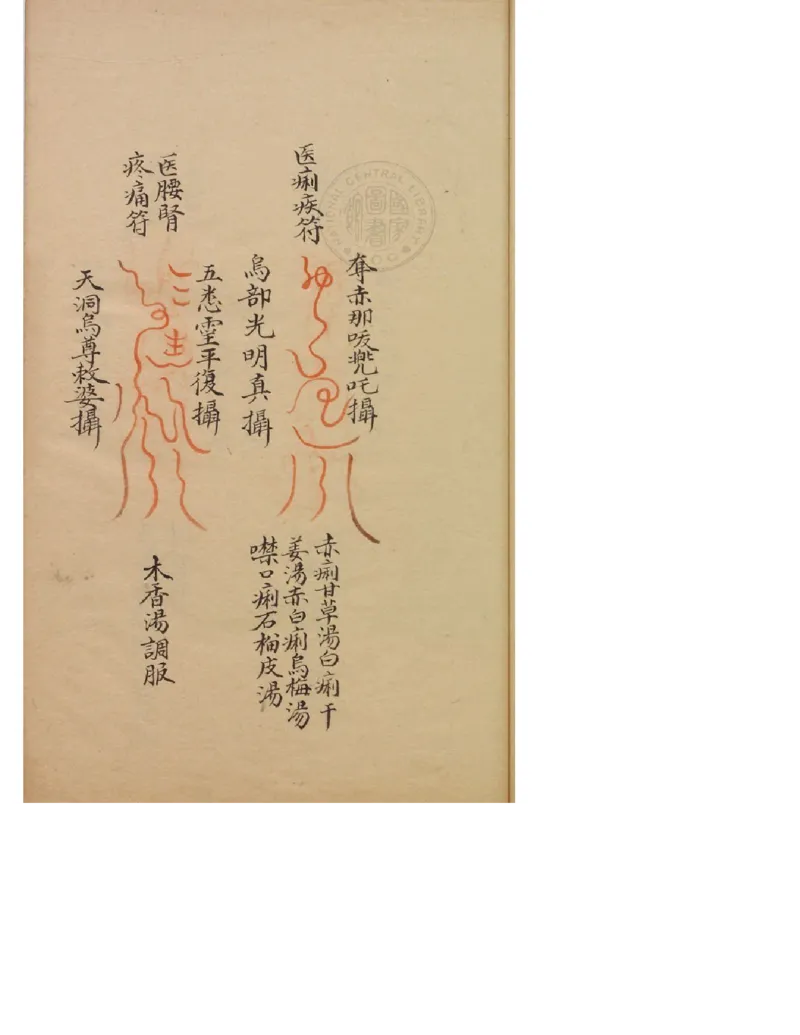 医痢疾符
奪赤那㕹兜吒攝
烏部光明真攝
赤痢甘草湯白痢干
姜湯赤白痢烏梅湯
噤口痢石榴皮湯
医腰腎
疼痛符
五悉霊平復攝
天洞烏尊敕婆攝
木香湯調服
NATIONAL CENTRAL LIBRARY